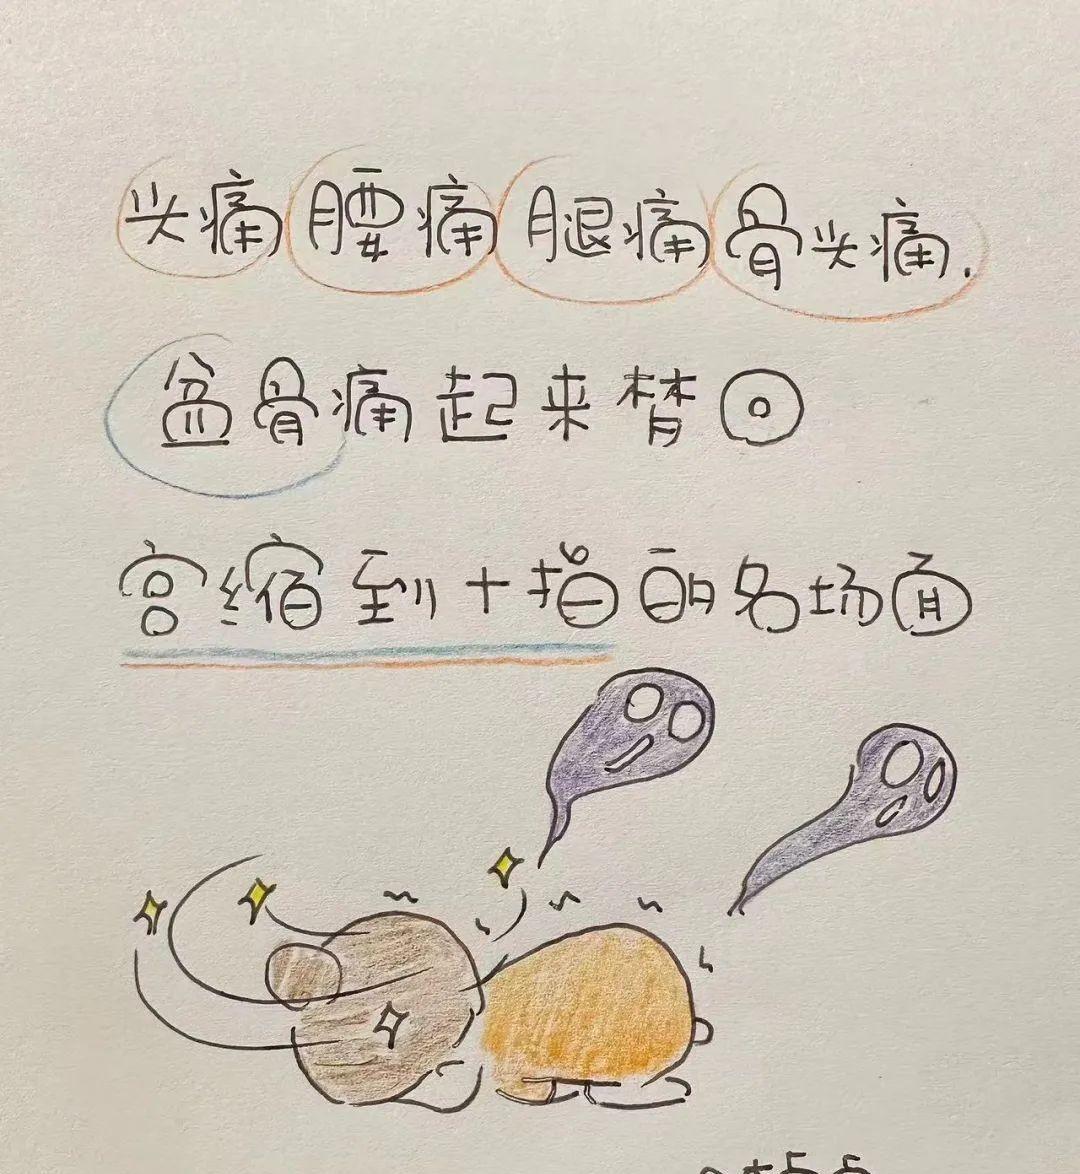 头痛 腰痛 腿痛 骨头痛.
盆骨痛起来梦回
宫缩到十指的名场面